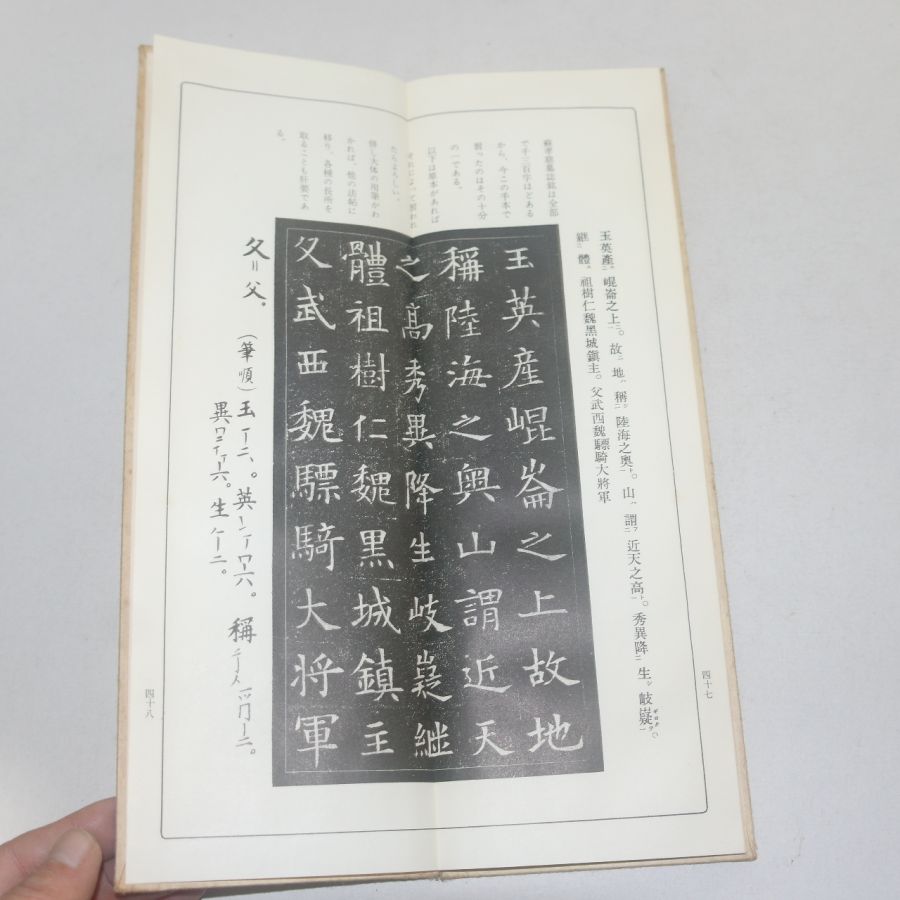 蘇孝慈墓誌銘は全部
で千三百字ほどある
から、今この手本で
習ったのはその十分
の一である。
以下は原本があれば
それによって習われ
たらよろしい。
併し大体の用筆がわ
かれば、他の法帖に
移り、各種の長所を
取ることも肝要であ
る。
玉英產崐崙之上。故地稱陸海之奧。山謂近天之高。秀異降生岐嶷
継體。祖樹仁魏黑城鎮主。父武西魏驃騎大將軍
四十七
玉英産崐崙之上故地
稱陸海之奥山謂近天
之高秀異降生岐嶷継
體祖樹仁魏黒城鎮主
父武西魏驃騎大将軍
父=父。
(筆順)玉一丨二、。英
稱
異
生ノ一丨二。
四十八